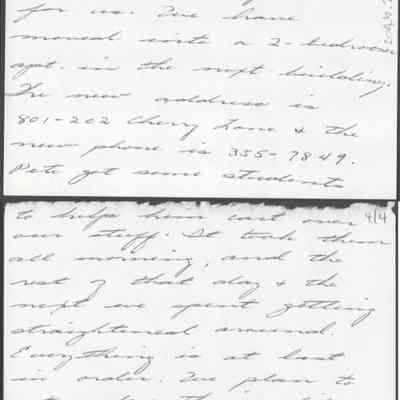 for us. We have
moved into a 2-bedroom
apt. in the next building.
The new address is
801-202 Cherry Lane & the
new phone is 355-7849.
Pete got some students
4/4
to helps him cart over
our stuff. It took them
all morning, and the
rest of that day & the
next we spent getting
straightened around.
Everything is at last
in order. We plan to